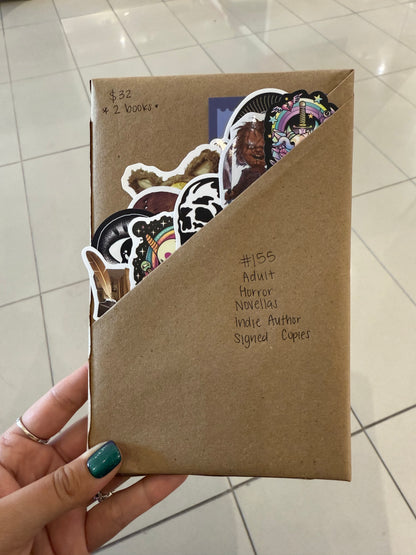 $32
* 2 books •
#155
Adult
Horror
Novellas
Indie Author
Signed Copies